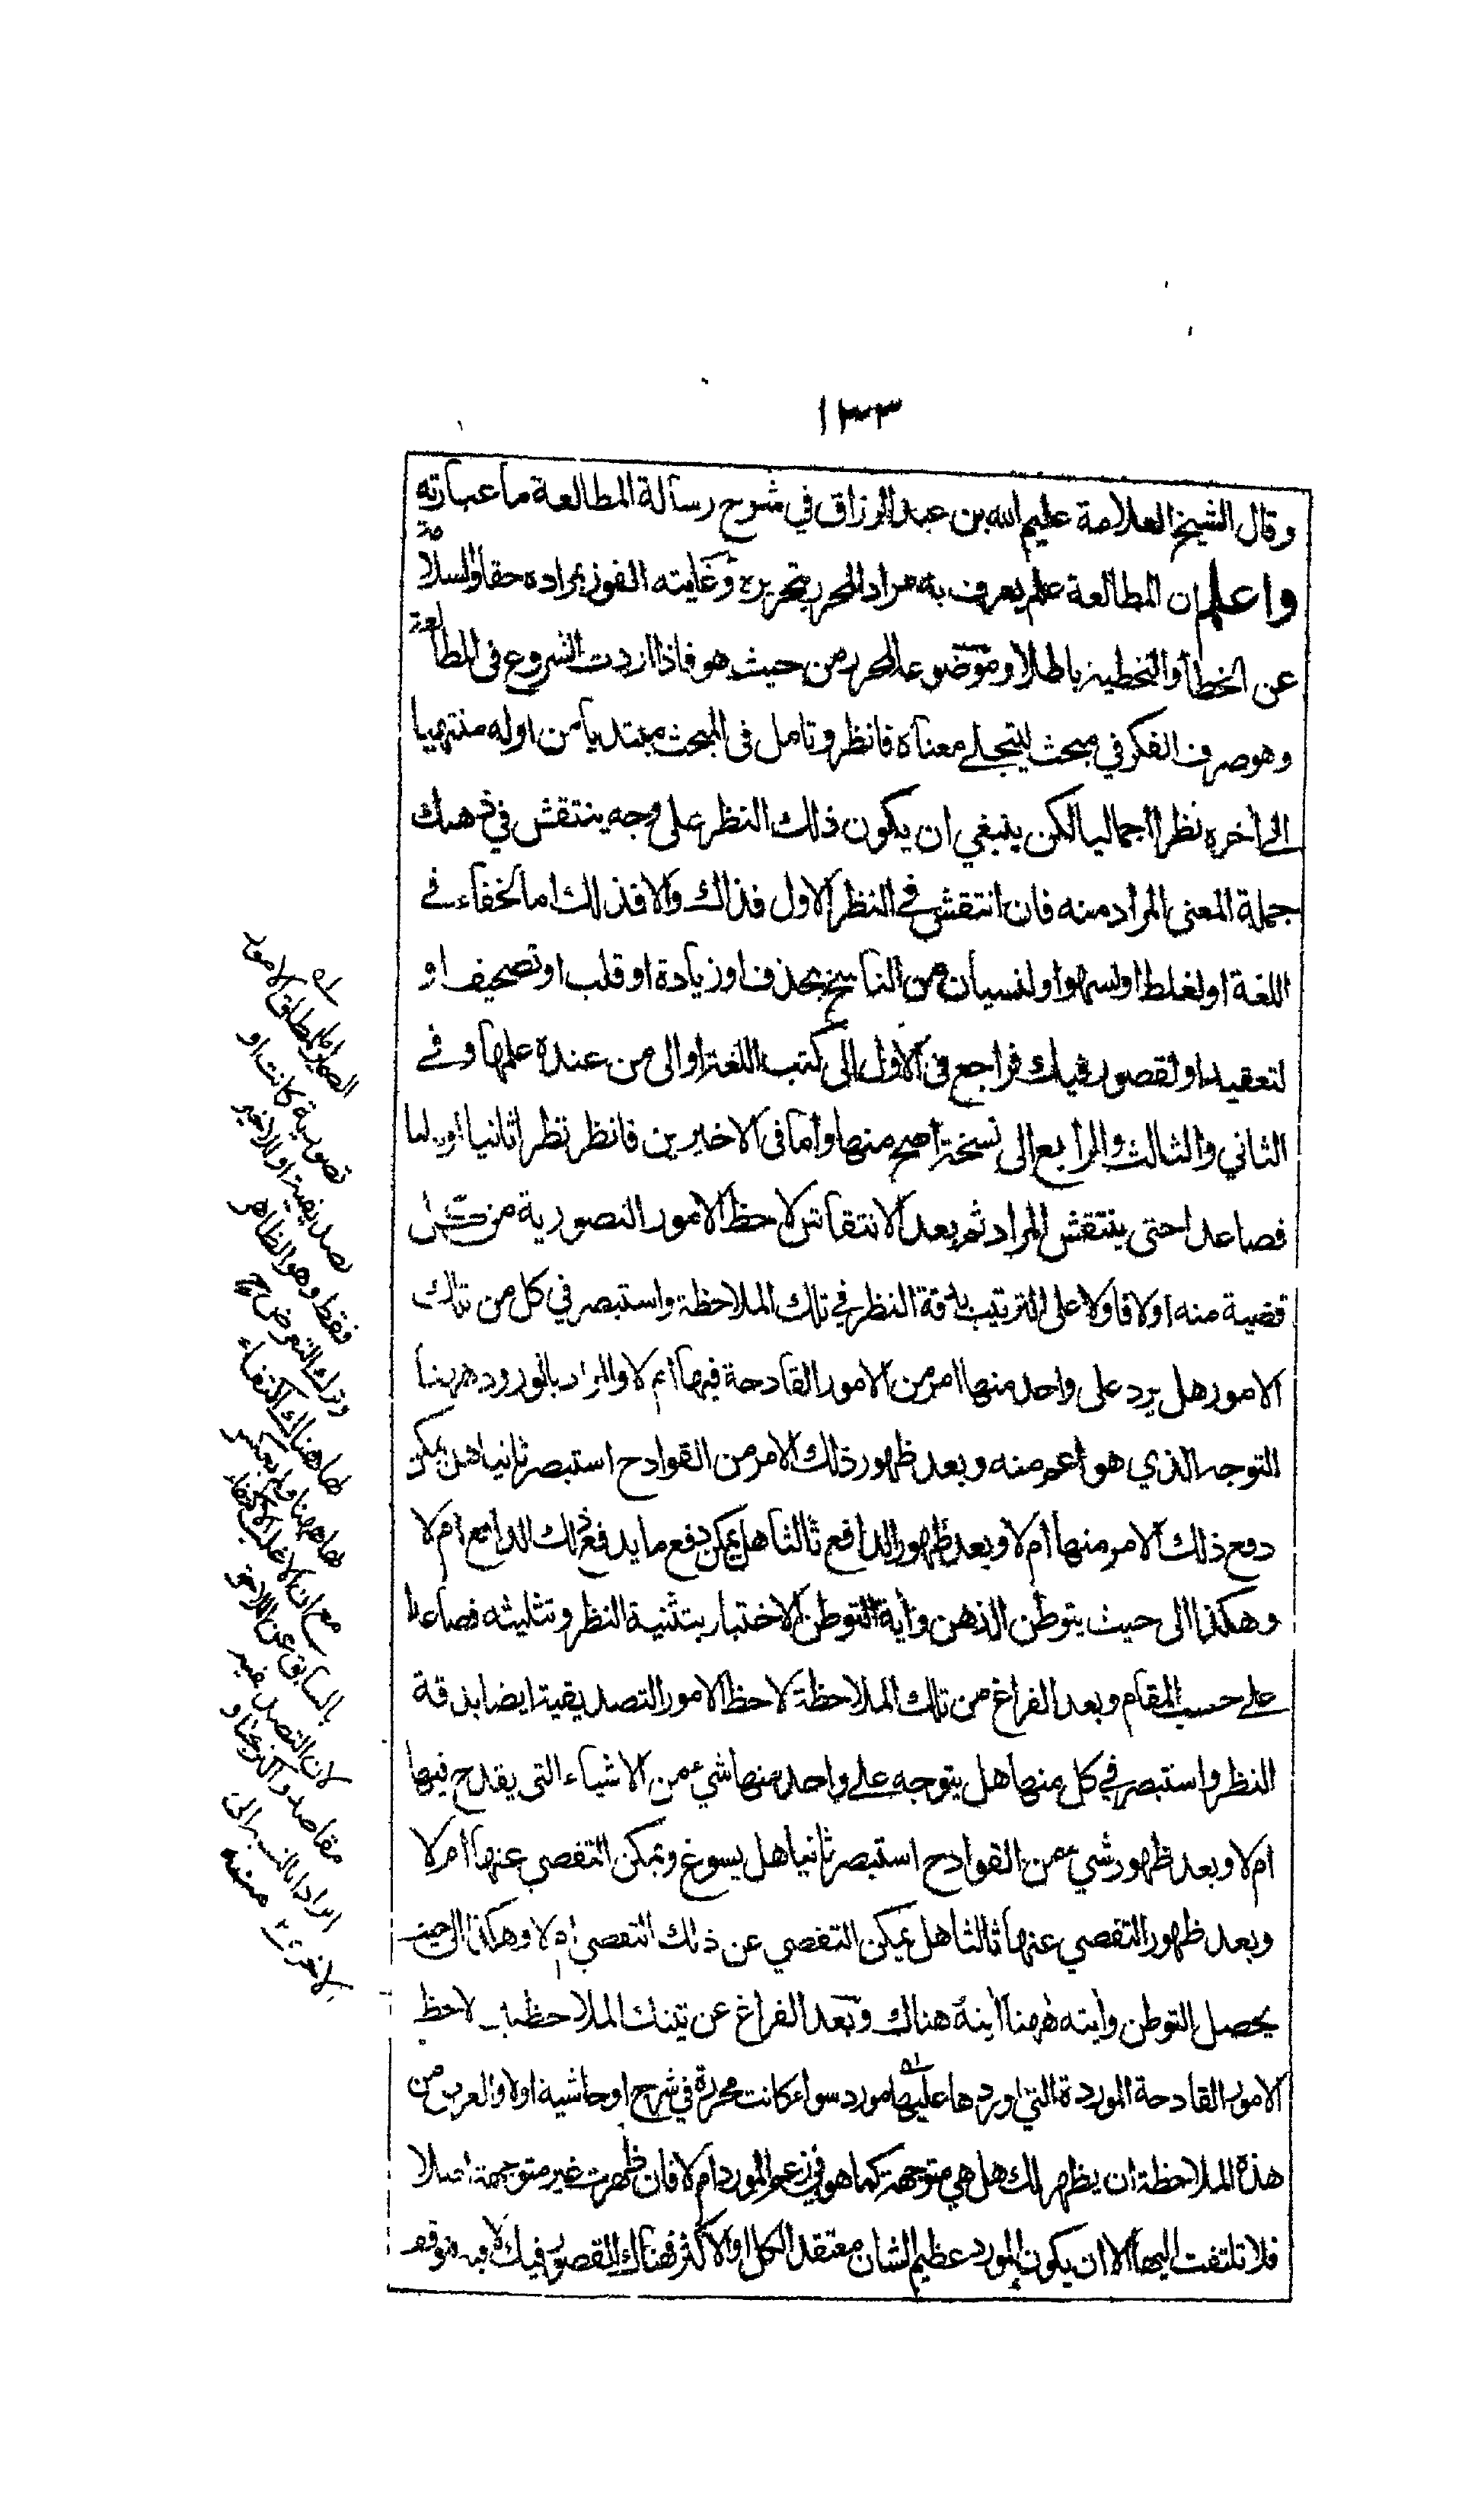 ١٣٣
وقال الشيخ العلامة عليم الله بن عبد الرزاق في شرح رسالة المطالعة ما عبارته
واعلم ان المطالعة علم يعرف به مراد المحرر بتحريره وغايته الفوز بمراده حقا والسلامة
عن الخطأ والتخطية باطلا وموضوعه المحرر من حيث هو فاذا اردت الشروع فى المطالعة
وهو صرف الفكر في مبحث ليتجلے معناه فانظر وتامل فى المبحث مبتديا من اوله منتهيا
الى اخره نظرا اجماليا لكن ينبغي ان يكون ذلك النظر على وجه ينتقش في ذهنك
جملة المعنى المراد منه فان انتقش في النظر الاول فذاك والا فذلك اما لخفاء في
اللغة او لغلط او لسهو او لنسيان من الناسخ بحذف او زيادة او قلب او تصحيف او
لتعقيد او لقصور فيك فراجع فى الاول الى كتب اللغة او الى من عنده علمها وفي
الثاني والثالث والرابع الى نسخة اصح منها واما فى الاخيرين فانظر نظرا ثانيا او ثالثا
فصاعدا حتى ينتقش المراد ثم بعد الانتقاش لاحظ الامور التصورية من كل
قضية منه اولا فاولا على الترتيب بدقة النظر في تلك الملاحظة واستبصر في كل من تلك
الامور هل يرد على واحد منها امر من الامور القادحة فيها ام لا والمراد بالورود ههنا
التوجه الذي هو اعم منه وبعد ظهور ذلك الامر من القوادح استبصر ثانيا هل يمكن
دفع ذلك الامر منها ام لا وبعد ظهور الدافع ثالثا هل يمكن دفع ما يدفع ذلك الدافع ام لا
وهكذا الى حيث يتوطن الذهن وأية التوطن الاختبار بتثنية النظر وتثليثه فصاعدا
على حسب المقام وبعد الفراغ من تلك الملاحظة لاحظ الامور التصديقية ايضا بدقة
النظر واستبصر في كل منها هل يتوجه علے واحد منها شيء من الاشياء التى يقدح فيها
ام لا وبعد ظهور شيء من القوادح استبصر ثانيا هل يسوغ ويمكن التفصي عنها ام لا
وبعد ظهور التفصي عنها ثالثا هل يمكن التفصي عن ذلك التفصي ام لا وهكذا الى حيث
يحصل التوطن وأيته ههنا أيته هناك وبعد الفراغ عن تينك الملاحظتين لاحظ
الامور القادحة الموردة التي اوردها عليها مورد سواء كانت محررة في شرح او حاشية اولا والغرض من
هذه الملاحظة ان يظهر لك هل هي متوجهة كما هو في زعم المورد ام لا فان ظهرت غير متوجهة اصلا
فلا تلتفت اليها الا ان يكون المورد عظيم الشان معتقد الكل او الاكثر فهناك القصور فيك لا فيه فتوقف
اى الامور
اما لمطلق الامور
تصورية كانت او
تصديقية او للاخير
فقط وهو الظاهر
وترك التعرض ح
لها هناك اكتفاء
بها ههنا ولم يعكس
مع ان الاغلب الاكتفاء
بالسابق عن اللاحق
لان التصديقية
مقاصد واكثر غناء و
ايرادا بالنسبة الى
الاخرى ١٢ منه